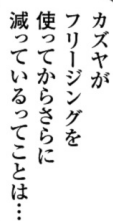 カズヤが
フリージングを
使ってからさらに
減っているってことは…